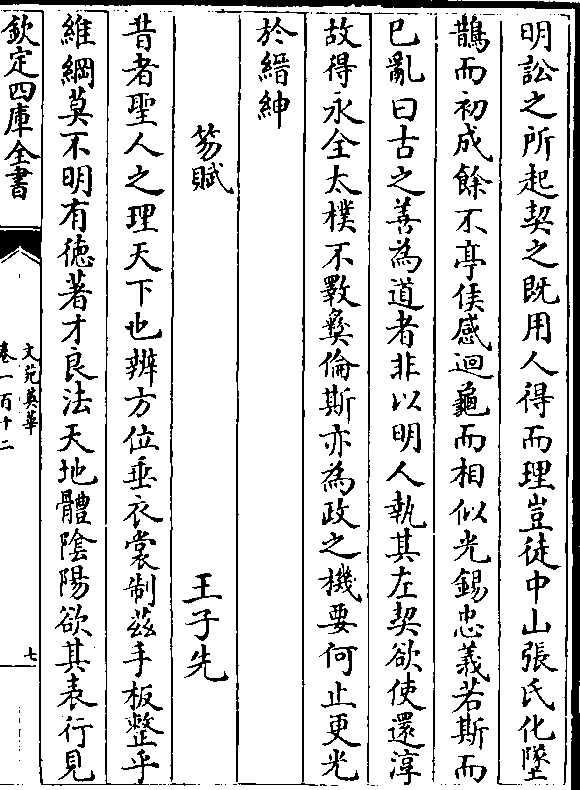 明訟之所起契之既用人得而理豈徒中山張氏化墜
鵲而初成餘不亭侯感迴龜而相似光錫忠義若斯而
已亂曰古之善為道者非以明人執其左契欲使還淳
故得永全太樸不斁彝倫斯亦為政之機要何止更光
於縉紳
笏賦　王子先
昔者聖人之理天下也辨方位垂衣裳制兹手板整乎
維綱莫不明有徳著才良法天地體陰陽欲其表行見
欽定四庫全書
文苑英華
卷一百十二
七